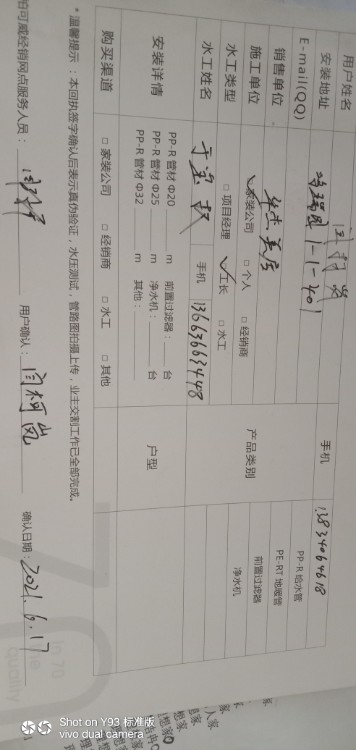 用户姓名 闫柯岚 手机 13834064618
安装地址 1-1-401
E-mail(QQ)
销售单位
施工单位 ✓家装公司 □ 个人 □ 经销商
水工类型 □ 项目经理 ✓工长 □ 水工
水工姓名 手机 13663663448
产品类别 PP-R 给水管 PE-RT 地暖管 前置过滤器 净水机
安装详情 PP-R 管材 Φ20 m 前置过滤器: 台
PP-R 管材 Φ25 m 净水机: 台
PP-R 管材 Φ32 m 其他:
户型
购买渠道 □ 家装公司 □ 经销商 □ 水工 □ 其他
* 温馨提示:本回执签字确认后表示真伪验证,水压测试,管路图拍摄上传,业主交割工作已全部完成。
伯可威经销网点服务人员: 用户确认: 闫柯岚 确认日期: 2021.6.17
Shot on Y93 标准版
vivo dual camera